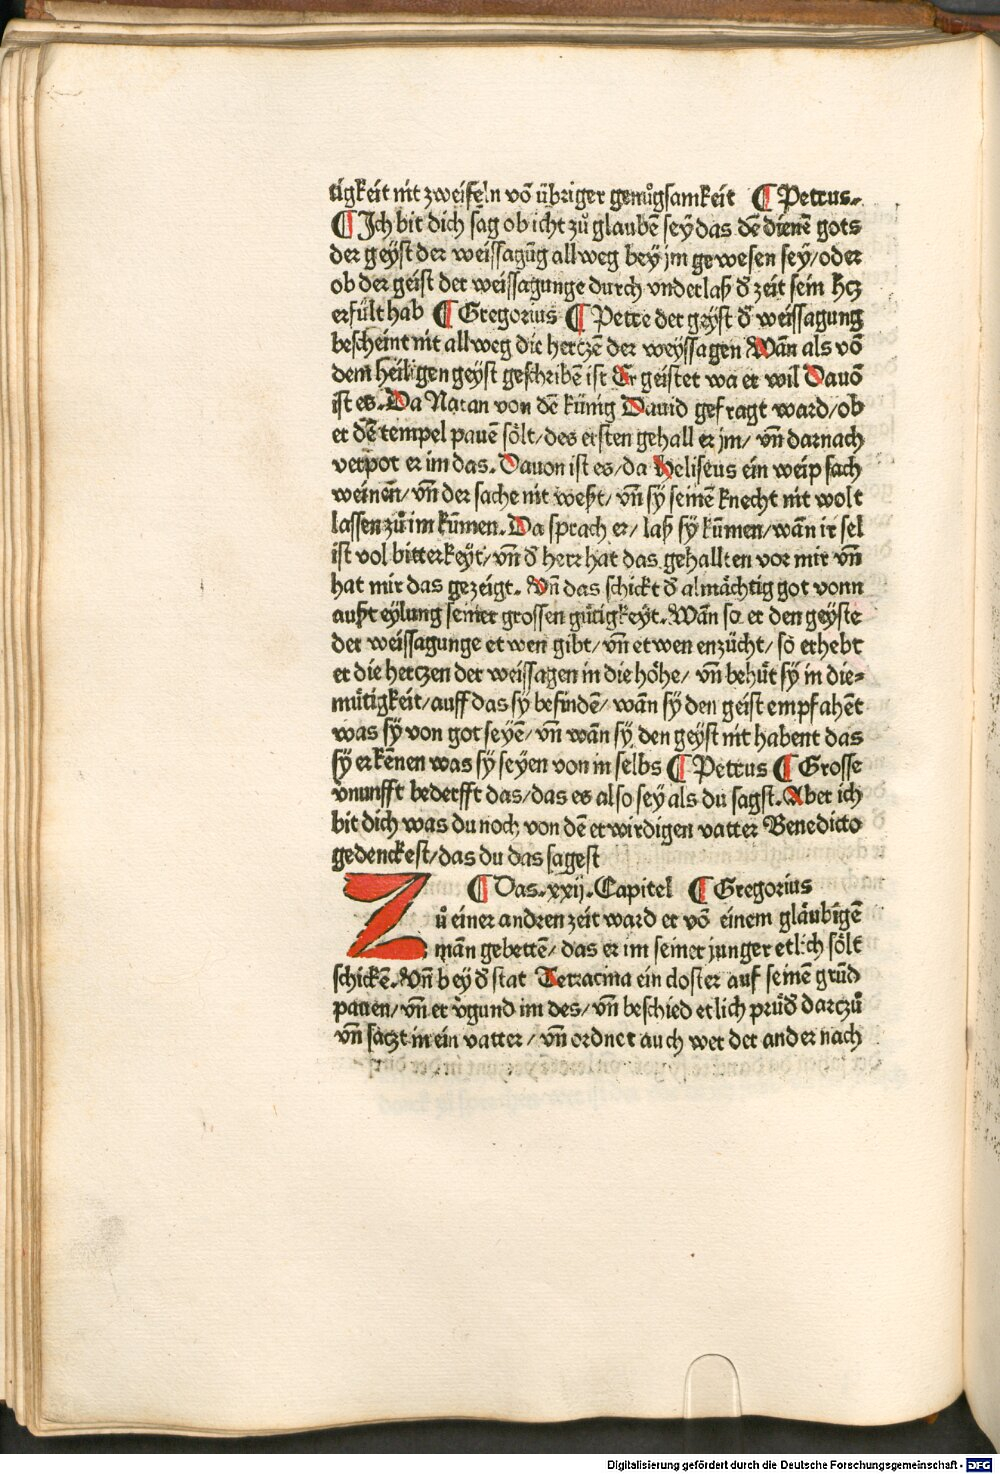 tigkeit nit zweifeln võ übriger genuͦgsamkeit ¶ Petrus.
¶ Ich bit dich sag ob icht zuͦ glaubẽ sey das dẽ dienẽ gots
der geyst der weissagũg allweg bey jm gewesen sey/oder
ob der geist der weissagunge durch vnderlaß đ zeit sein hcz
erfült hab ¶ Gregorius ¶ Petre der geyst đ weissagung
bescheint nit allweg die hertzẽ der weyssagen Wãn als võ
dem heiligen geyst geschribẽ ist Er geistet wa er wil Dauõ
ist es. Da Natan von dẽ künig Dauid gefragt ward/ob
er dẽ tempel pauẽ soͤlt/des ersten gehall er jm/ vñ darnach
verpot er im das. Dauon ist es/da Heliseus ein weip sach
weinẽn/vñ der sache nit weßt/vñ sy seinẽ knecht nit wolt
lassen zuͦ im kũmen. Da sprach er/ laß sy kũmen/wãn ir sel
ist vol bitterkeyt/vñ đ herr hat das gehallten vor mir vñ
hat mir das gezeigt. Vñ das schickt đ almaͤchtig got vonn
außteylung seiner grossen guͤtigkeyt. Wãn so er den geyste
der weissagunge etwen gibt/vñ etwen enzücht/ so erhebt
er die hertczen der weissagen in die hoͤhe/ vñ behuͤt sy in die=
muͤtigkeit/auff das sy befindẽ/ wãn sy den geist empfahẽt
was sy von got seyẽ/ vñ wãn sy den geyst nit habent das
sy erkẽnen was sy seyen von in selbs ¶ Petrus ¶ Grosse
v̄nunfft bederfft das/das es also sey als du sagst. Aber ich
bit dich was du noch von dẽ erwirdigen vatter Benedicto
gedenckest/das du das sagest
¶ Das .xxij. Capitel ¶ Gregorius
Zuͦ einer andren zeit ward er võ einem glaͤubigẽ
mãn gebettẽ/ das er im seiner junger etlich soͤlt
schickẽ. Vñ bey đ stat Terracina ein closter auf seinẽ grũd
pauen/ vñ er v̄gund im des/ vñ beschied etlich pruͤđ darczuͦ
vñ saczt in ein vatter / vñ ordnet auch wer der ander nach
Digitalisierung gefördert durch die Deutsche Forschungsgemeinschaft - DFG